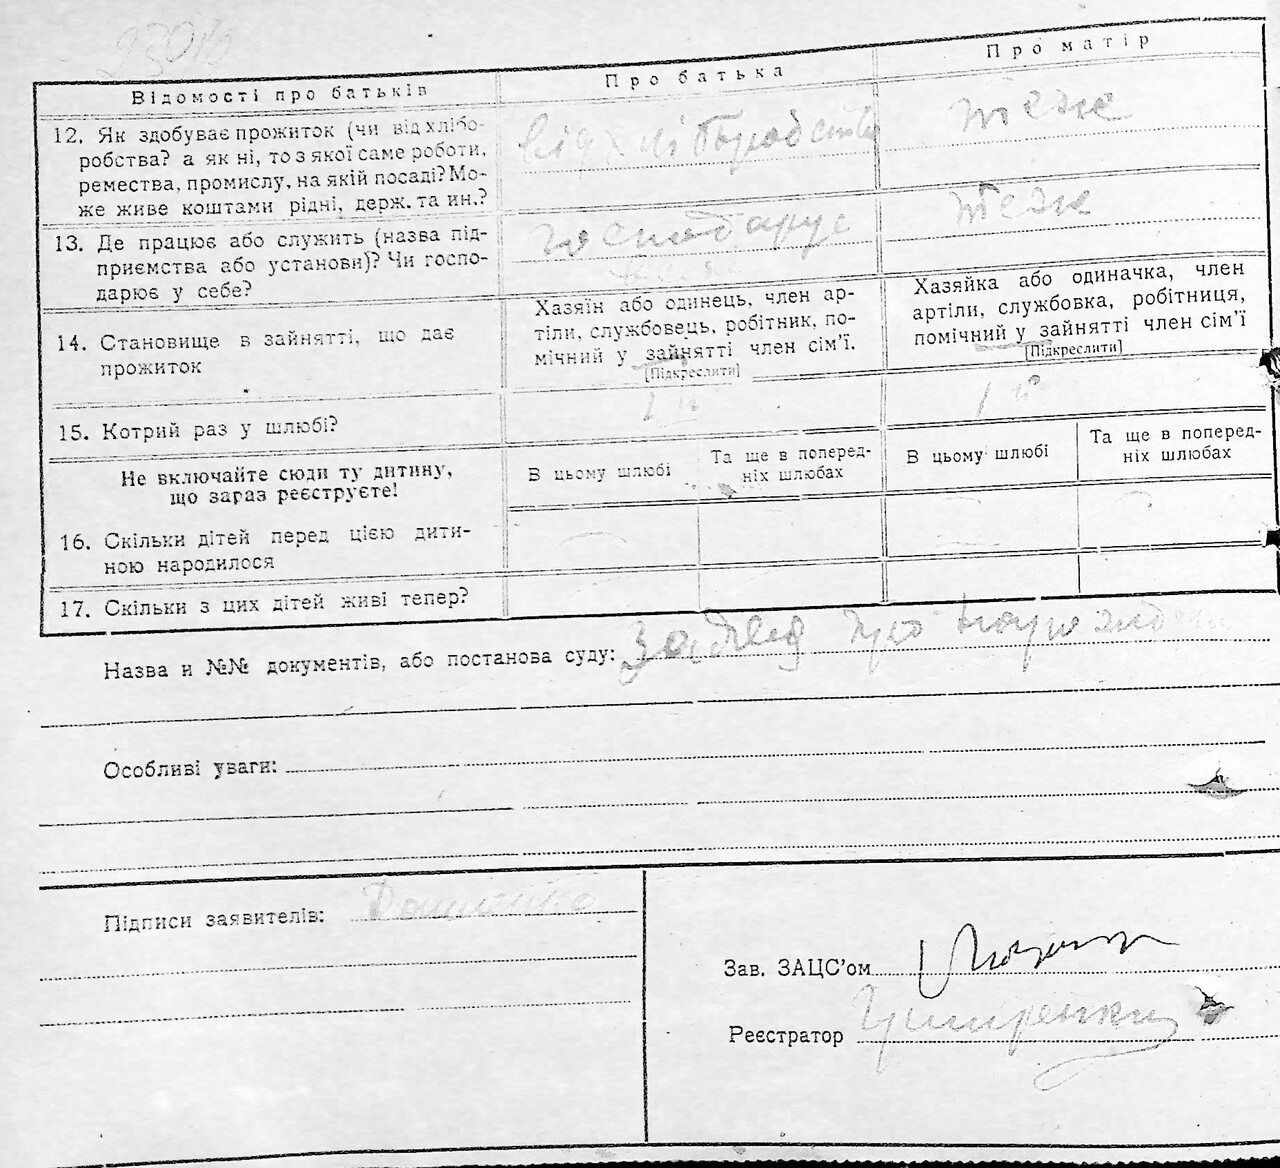 Відомості про батьків
Про батька
Про матір
12. Як здобуває прожиток (чи від хлібо-
робства? а як ні, то з якої саме роботи,
ремества, промислу, на якій посаді? Мо-
же живе коштами рідні, держ. та ин.?
від хліборобства
теж
13. Де працює або служить (назва під-
приємства або установи)? Чи госпо-
дарює у себе?
господарує
теж
14. Становище в зайнятті, що дає
прожиток
Хазяїн або одинець, член ар-
тіли, службовець, робітник, по-
мічний у зайнятті член сім'ї.
[Підкреслити]
Хазяйка або одиначка, член
артіли, службовка, робітниця,
помічний у зайнятті член сім'ї
[Підкреслити]
15. Котрий раз у шлюбі?
1 й
1 й
Не включайте сюди ту дитину,
що зараз реєструєте!
В цьому шлюбі
Та ще в поперед-
ніх шлюбах
В цьому шлюбі
Та ще в поперед-
ніх шлюбах
16. Скільки дітей перед цією дити-
ною народилося
17. Скільки з цих дітей живі тепер?
Назва и №№ документів, або постанова суду: про
Особливі уваги:
Підписи заявителів:
Зав. ЗАЦС'ом
Реєстратор